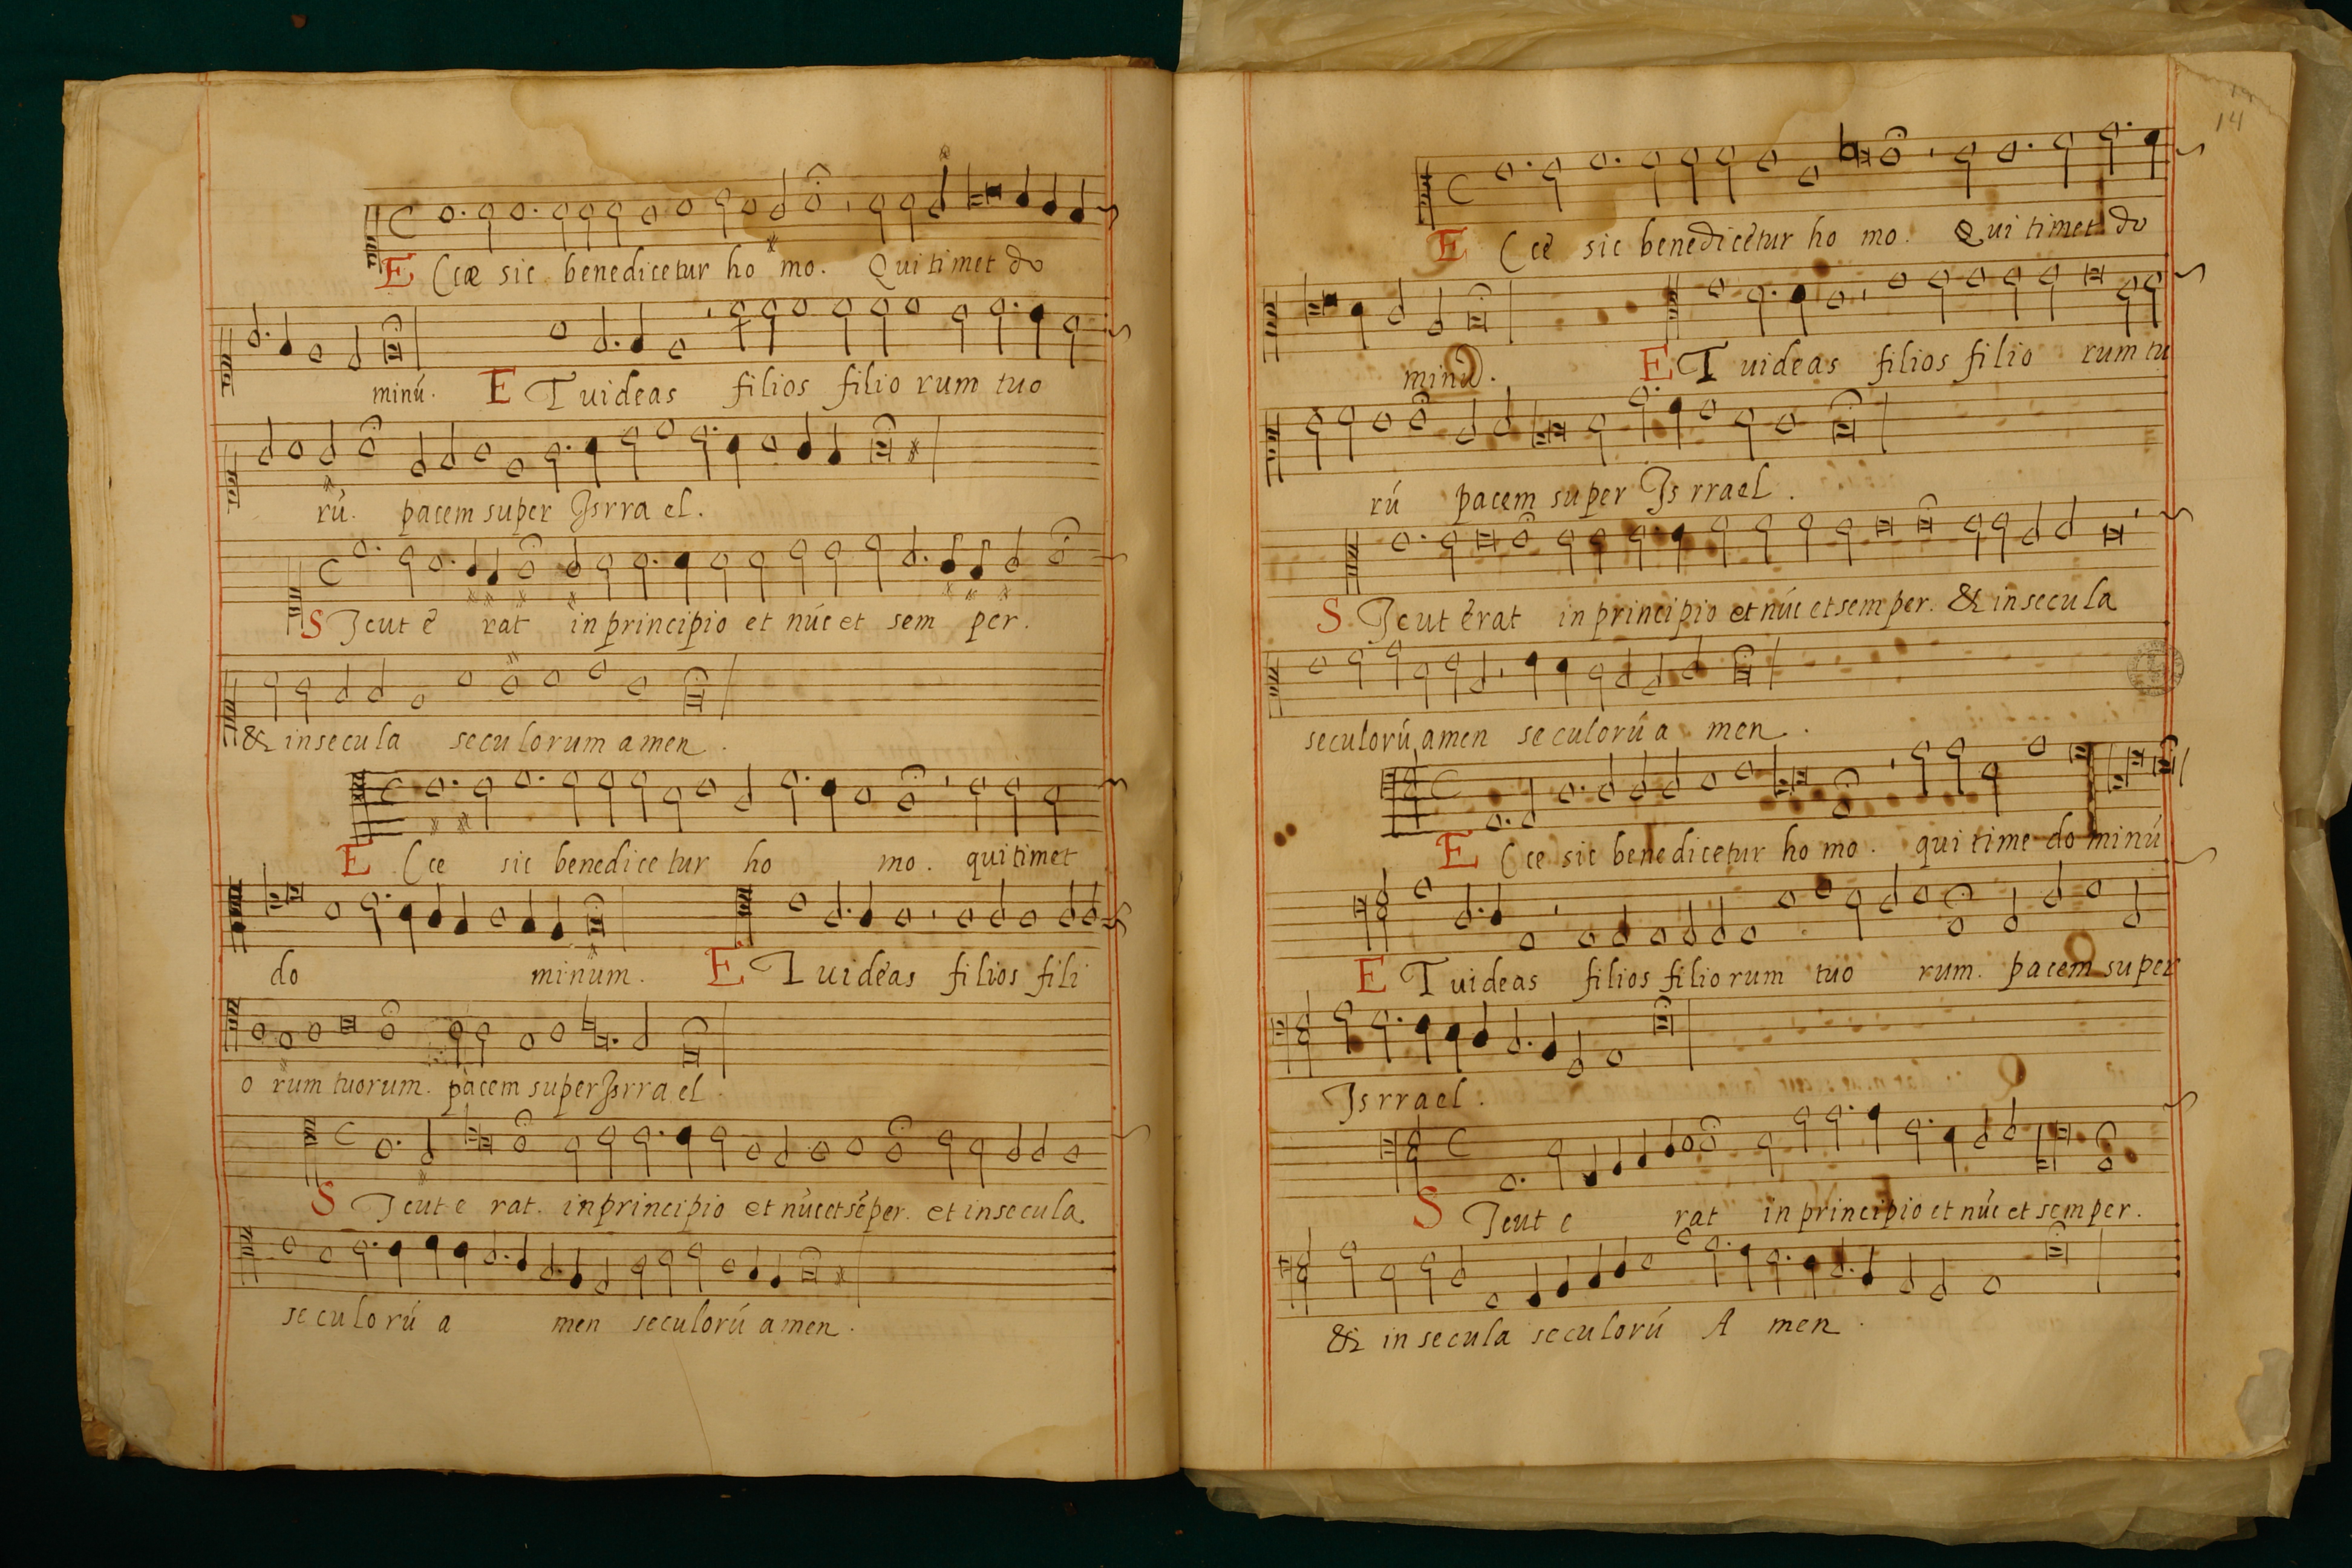 ECcæ sic benedicetur ho mo. Qui timet do
minú. ET uideas filios filio rum tuo
rú. pacem super Jsrra el.
SJcut e rat in principio et núc et sem per.
& in secula seculorum amen.
ECce sic benedice tur ho mo. qui timet
do minum. ET uideas filios fili
o rum tuorum. pacem super Jsrra el
SJcut e rat. in principio et núc et séper. et in secula
seculorú a men seculorú amen.
14
ECce sic benedicétur ho mo. Qui timet do
minú. ET uideas filios filio rum tu
rú pacem super Js rrael.
SJcut érat in principio et núc et semper. & in secula
seculorú amen seculorú a men.
ECce sic benedicetur ho mo. qui time do minú
ET uideas filios filiorum tuo rum. pacem super
Jsrrael.
SJcut e rat in principio et núc et semper.
& in secula seculorú A men.